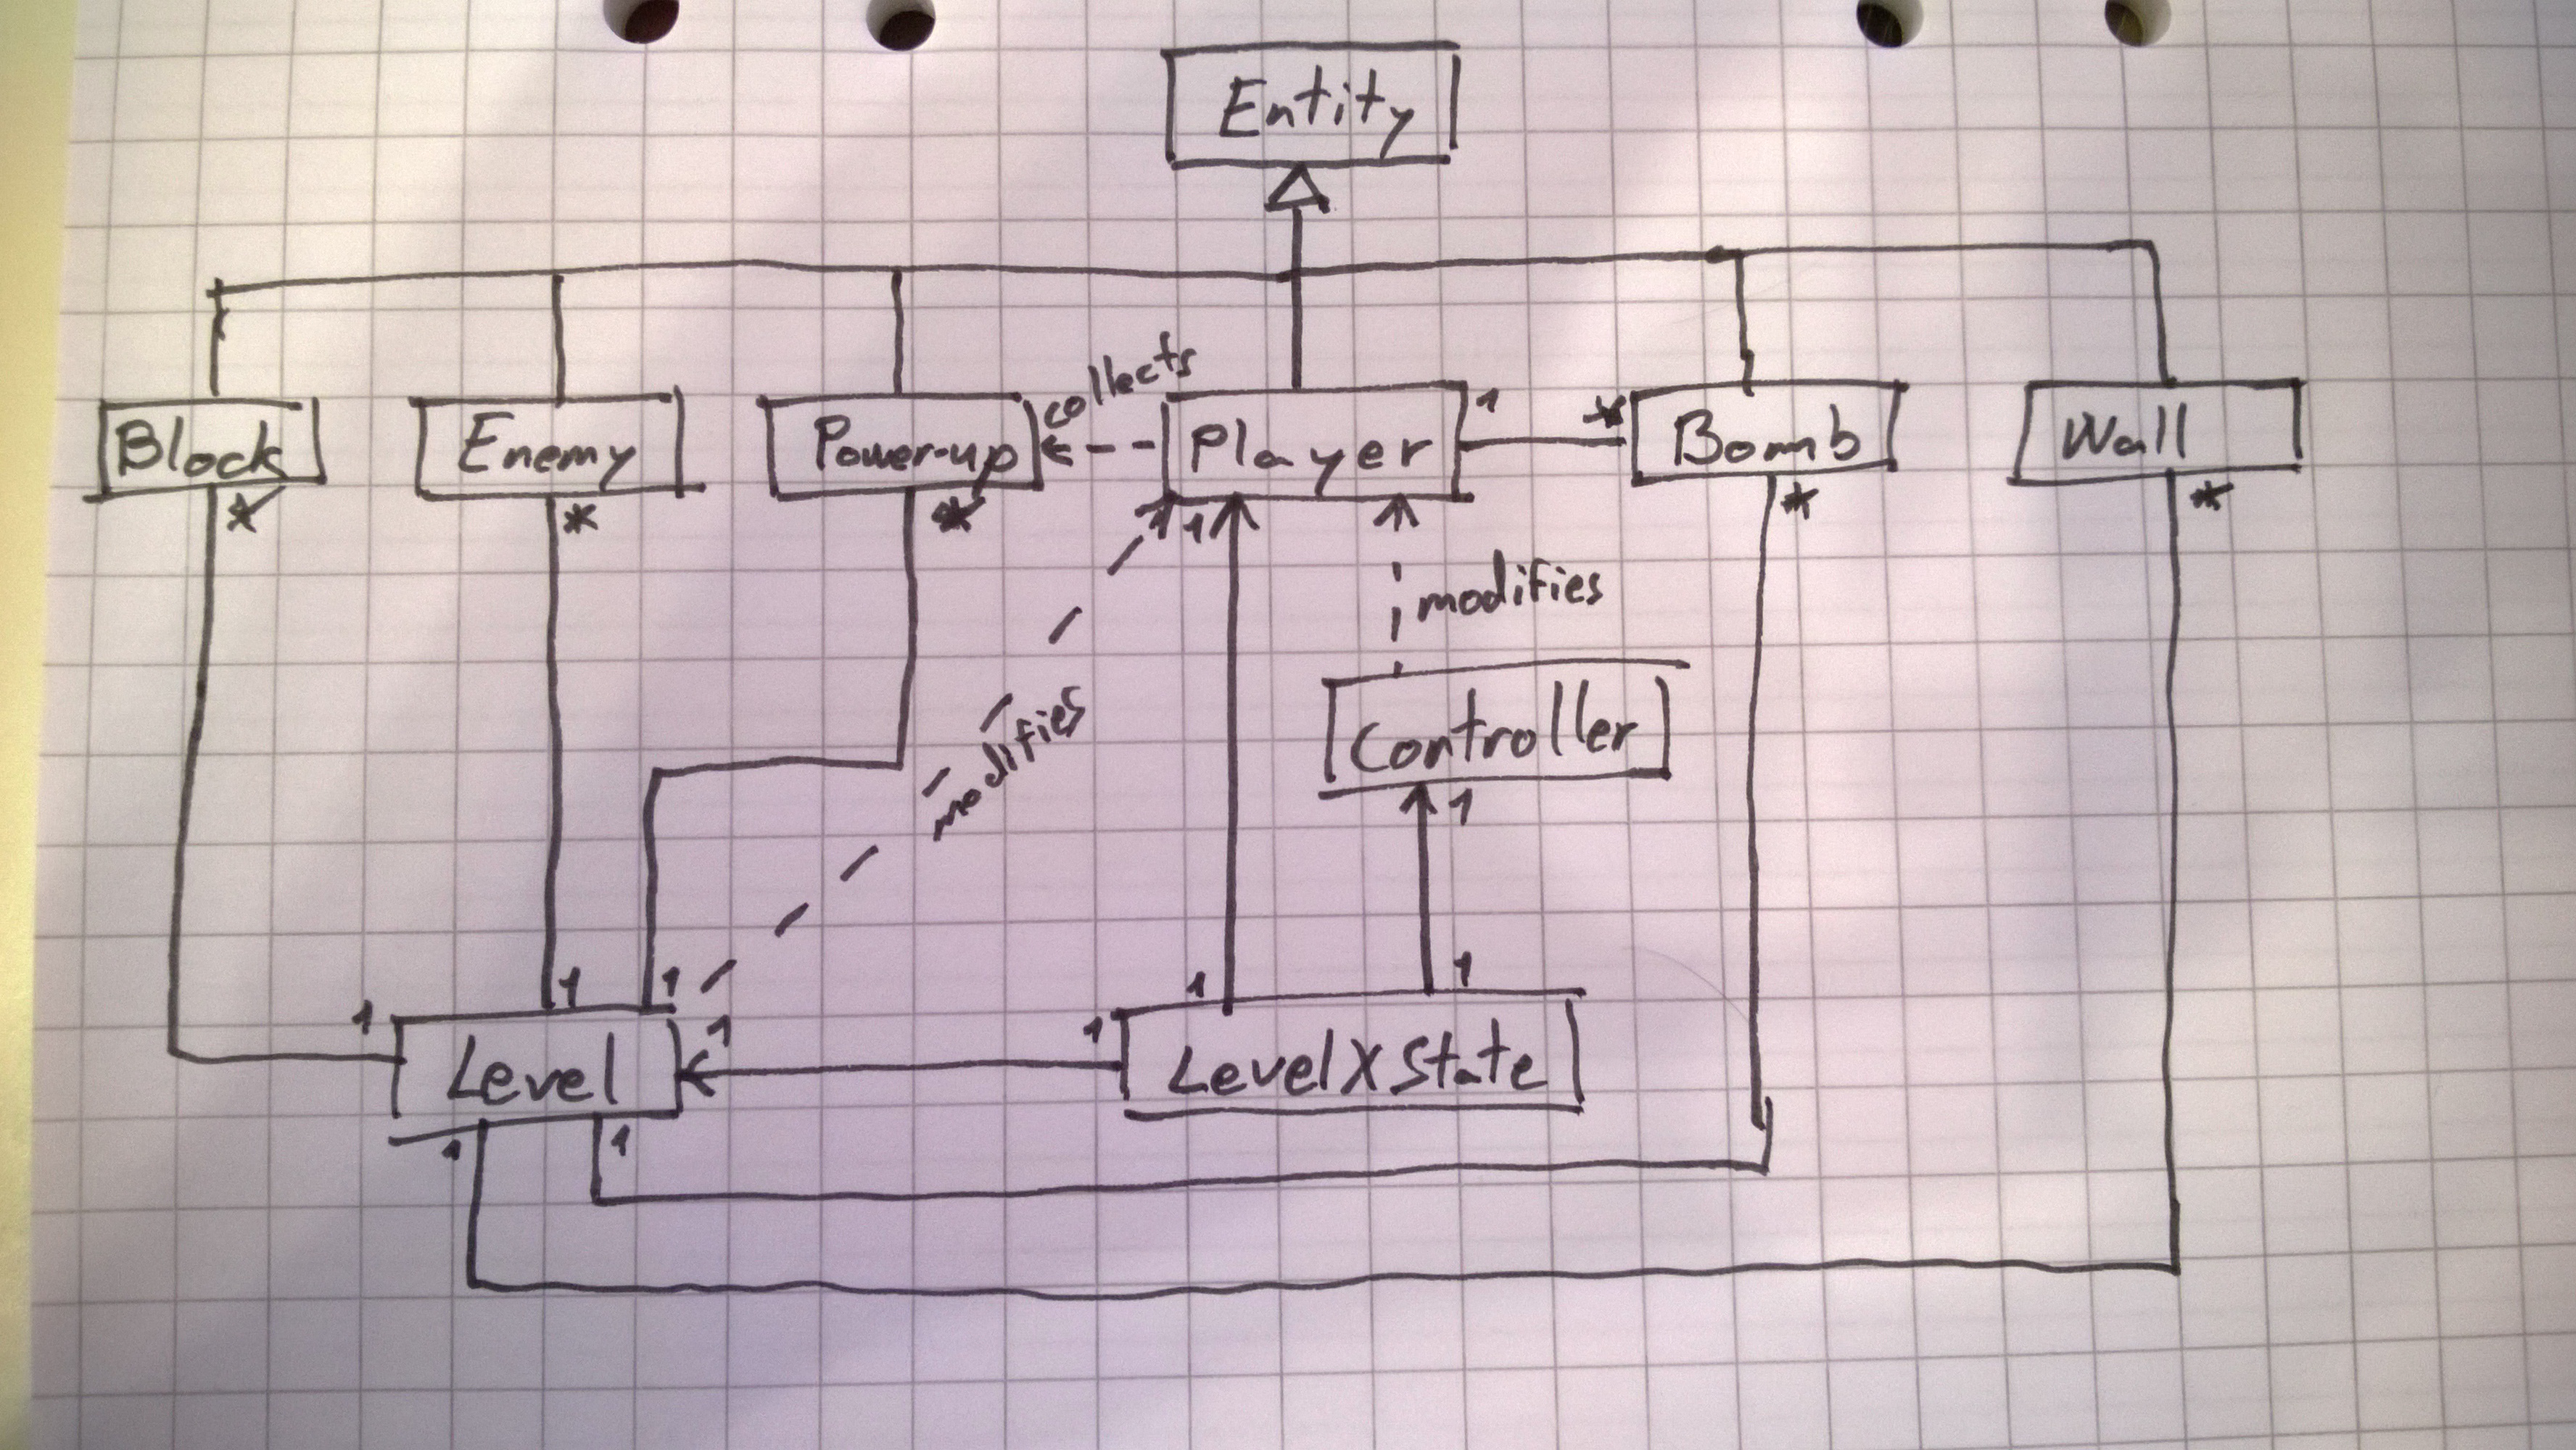 Entity
collects
Block
Enemy
Power-up
Player
1
*
Bomb
Wall
*
*
*
1
1
*
*
modifies
modifies
Controller
1
1
1
1
1
1
1
1
Level
LevelXState
1
1